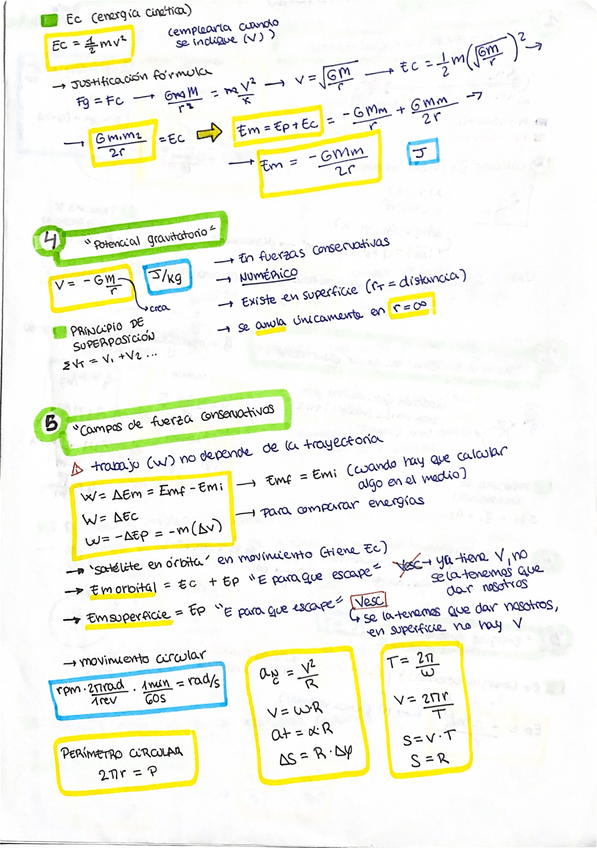 Ec (energía cinética)
Ec = 1/2 mv²
(emplearla cuando
se indique (v))
→ Justificación fórmula
Fg = Fc → GmM/r² = m v²/r → v = √(GM/r) → Ec = 1/2 m(√(GM/r))² →
→ Gm₁m₂/2r = Ec ⇒ Em = Ep + Ec = -GMm/r + GMm/2r →
→ Em = -GMm/2r J
4 "Potencial gravitatorio"
V = -GM/r J/kg
crea
→ En fuerzas conservativas
→ NUMÉRICO
→ Existe en superficie (rT = distancia)
→ se anula únicamente en r = ∞
PRINCIPIO DE
SUPERPOSICIÓN
ΣVT = V₁ + V₂ ...
5 "Campos de fuerza conservativos
⚠ trabajo (W) no depende de la trayectoria
W = ΔEm = Emf - Emi → Emf = Emi (cuando hay que calcular
algo en el medio)
W = ΔEc
W = -ΔEp = -m(Δv) → para comparar energías
→ "satélite en órbita" en movimiento (tiene Ec)
→ Em orbital = Ec + Ep "E para que escape" = Vesc → ya tiene V, no
se la tenemos que
dar nosotros
→ Em superficie = Ep "E para que escape" = Vesc
↳ se la tenemos que dar nosotros,
en superficie no hay V
→ movimiento circular
rpm · 2πrad/1rev · 1min/60s = rad/s
PERÍMETRO CIRCULAR
2πr = P
aN/c = v²/R
V = ω·R
at = α·R
ΔS = R·Δφ
T = 2π/ω
V = 2πr/T
S = V·T
S = R